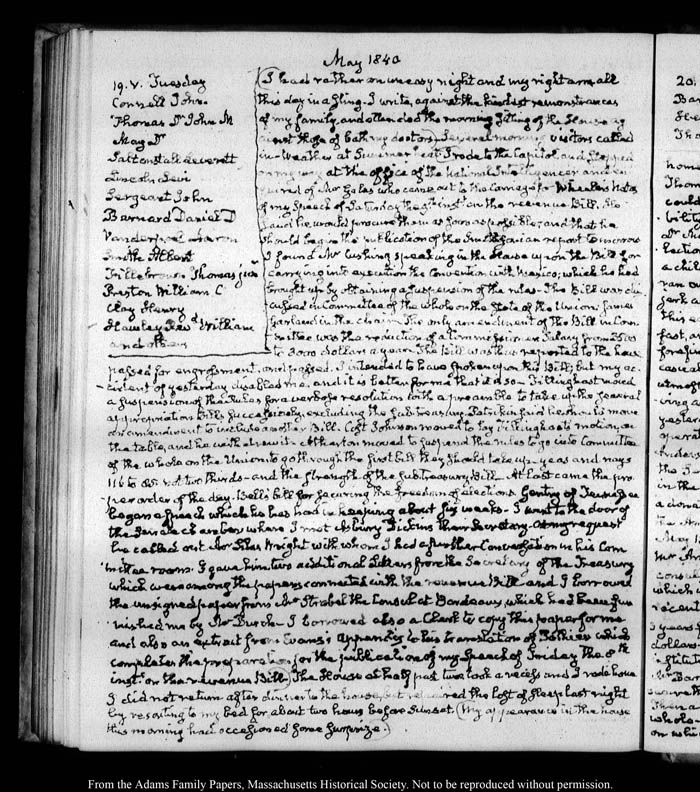 May 1840
19. V. Tuesday
Connell John.
Thomas Dr John M
May Dr
Saltonstall Leverett
Lincoln Levi
Sergeant John
Barnard Daniel D
Vanderpoel Aaron
Smith Albert
Fillebrown Thomas junr
Preston William C
Clay Henry
Hawley Revd William
and others
I had rather an uneasy night and my right arm all
this day in a sling. I write, against the kindest remonstrances
of my family, and attended the morning sitting of the House ag
ainst those of both my doctors. Several morning visitors called
in. Weather at Summer heat. I rode to the Capitol, and stopped
on my way at the office of the National Intelligencer and en
quired of Mr Gales who came out to the carriage for Wheeler's Notes
of my Speech of Saturday the 9th inst. on the revenue Bill. He
said he would procure them as soon as possible; and that he
should begin the publication of the Smithsonian report tomorrow
I found Mr Cushing speaking in the House upon the Bill for
carrying into execution the Convention with Mexico, which he had
brought up by obtaining a suspension of the rules. The Bill was dis
cussed in Committee of the whole on the State of the Union: James
Garland in the chair. The only amendment of the Bill in Com
mittee was the reduction of a Commissioners Salary from 3500
to 3000 dollars a year. The Bill was then reported to the house
passed for engrossment, and passed. I intended to have spoken upon this Bill; but my ac-
cident of yesterday disabled me, and it is better for me that it did so. Tillinghast moved
a suspension of the Rules for a verbose resolution with a preamble to take up the several
appropriation Bills successively, excluding the Subtreasury. Petrikin said he should move
an amendment to include another Bill. Cost Johnson moved to lay Tillinghast's motion, on
the table, and he withdrew it. Atherton moved to suspend the rules to go into Committee
of the whole on the Union to go through the first bill they should take up. yeas and nays
116 to 68 not two thirds. and the strength of the Subtreasury Bill. At last came the pro
per order of the day. Bell's bill for securing the freedom of elections. Gentry of Tennessee
began a Speech which he has had in keeping about six weeks. I went to the door of
the Senate Chamber where I met Asbury Dickins their Secretary. At my request
he called out Mr Silas Wright with whom I had a further Conversation in his Com
mittee room. I gave him two additional Letters from the Secretary of the Treasury
which were among the papers connected with the revenue Bill. and I borrowed
the unsigned paper from Mr Strobel the Consul at Bordeaux, which had been fur
nished me by Mr Burche. I borrowed also a Clerk to copy this paper for me
and also an extract from Evans's Appendix to his translation of Pothier which
completes the preparation for the publication of my Speech of Friday the 8th
inst. on the revenue Bill. The House at half past two took a recess and I rode home
I did not return after dinner to the house, but repaired the loss of sleep last night
by resorting to my bed for about two hours before Sunset. (My appearance in the house
this morning had occasioned some surprize.)
From the Adams Family Papers, Massachusetts Historical Society. Not to be reproduced without permission.